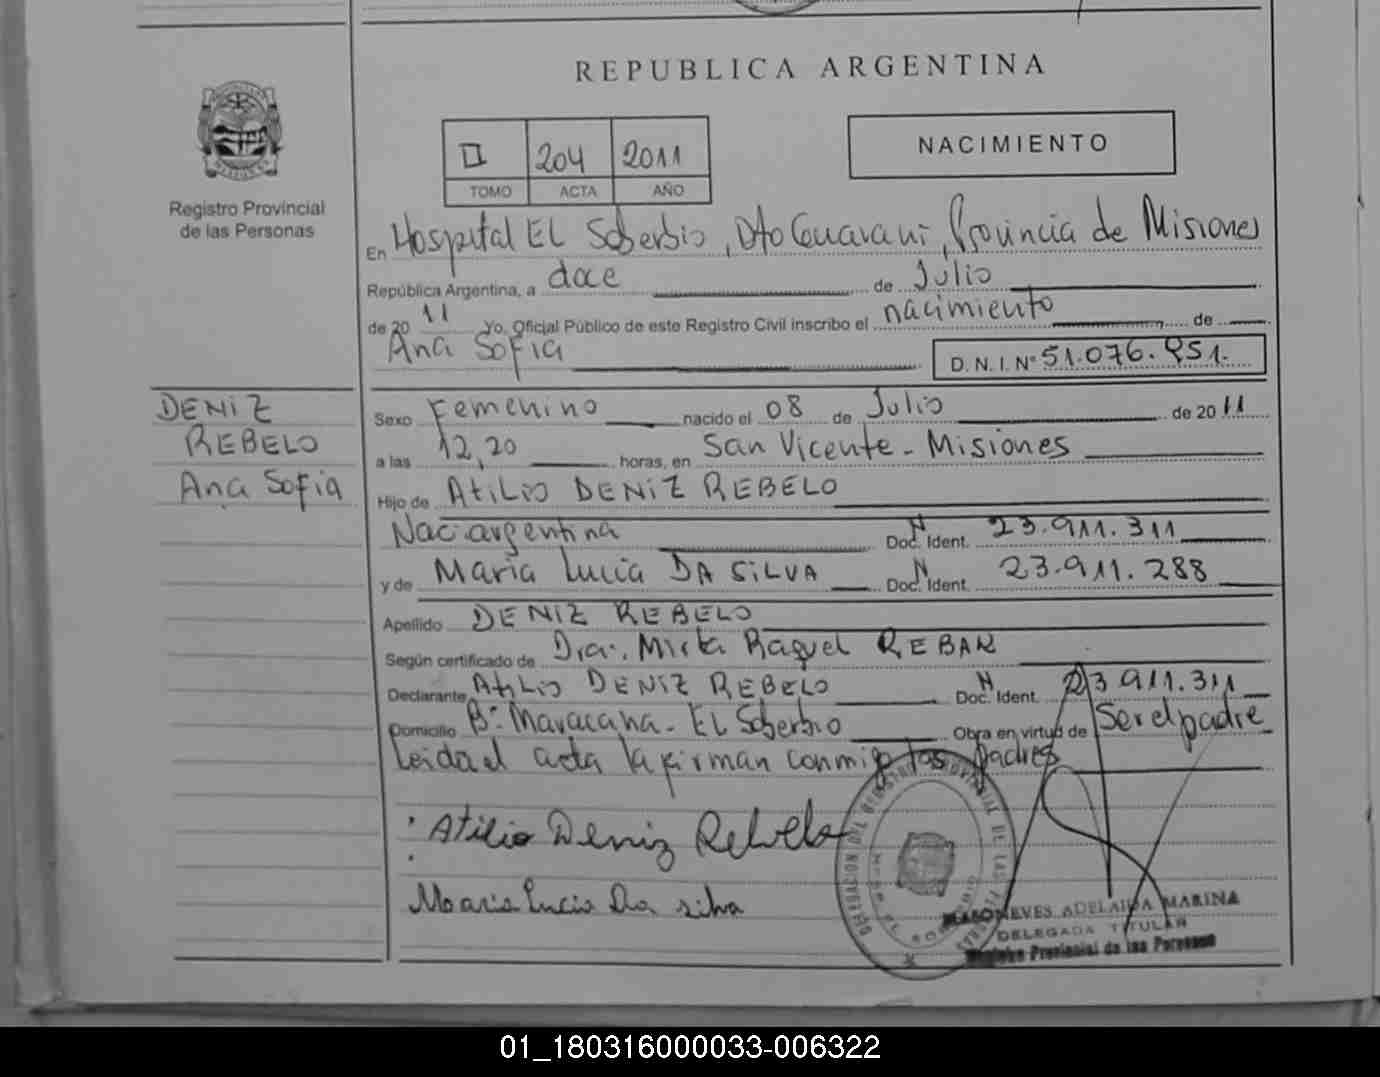 REPUBLICA ARGENTINA
II 204 2011
TOMO ACTA AÑO
NACIMIENTO
Registro Provincial
de las Personas
En Hospital El Soberbio, Dto Guarani, Provincia de Misiones
República Argentina, a doce de Julio
de 20 11 Yo, Oficial Público de este Registro Civil inscribo el nacimiento de
Ana Sofia D.N.I. Nº 51.076.951.
DENIZ
REBELO
Ana Sofia
Sexo Femenino nacido el 08 de Julio de 20 11
a las 12,20 horas, en San Vicente - Misiones
Hijo de Atilio DENIZ REBELO
Nac. argentina Doc. Ident. N 23.911.311
y de Maria Lucia DA SILVA Doc. Ident. N 23.911.288
Apellido DENIZ REBELO
Según certificado de Dra. Mirta Raquel REBAK
Declarante Atilio DENIZ REBELO Doc. Ident. N 23.911.311
Domicilio Bº Maracana - El Soberbio Obra en virtud de Ser el padre
Leida el acta la firman conmigo los padres
Atilio Deniz Rebelo
Maria Lucia Da silva
DELEGACION DEL REGISTRO PROVINCIAL DE LAS PERSONAS
NEVES ADELAIDA MARINA
DELEGADA TITULAR
Registro Provincial de las Personas
01_180316000033-006322